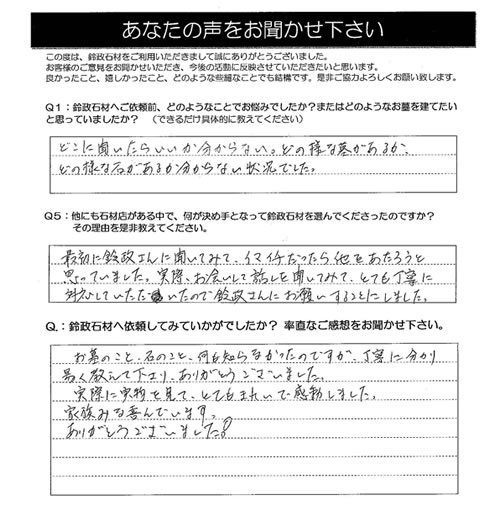 あなたの声をお聞かせ下さい
この度は、鈴政石材をご利用いただきまして誠にありがとうございました。
お客様のご意見をお聞かせいただき、今後の活動に反映させていただきたいと思います。
良かったこと、嬉しかったこと、どのような些細なことでも結構です。是非ご協力よろしくお願い致します。
Q1：鈴政石材へご依頼前、どのようなことでお悩みでしたか？またはどのようなお墓を建てたい
と思っていましたか？（できるだけ具体的に教えてください）
どこに聞いたらいいか分からない。どの様な墓があるか、
どの様な石があるか分からない状況でした。
Q5：他にも石材店がある中で、何が決め手となって鈴政石材を選んでくださったのですか？
その理由を是非教えてください。
最初に鈴政さんに聞いてみて、イマイチだったら他をあたろうと
思っていました。実際、お会いして話しを聞いてみて、とても丁寧に
対応していただいたので鈴政さんにお願いすることにしました。
Q.：鈴政石材へ依頼してみていかがでしたか？ 率直なご感想をお聞かせ下さい。
お墓のこと、石のこと、何も知らなかったのですが、丁寧に分かり
易く教えて下さり、ありがとうございました。
実際に実物を見て、とてもきれいで感動しました。
家族みな喜んでいます。
ありがとうございました！